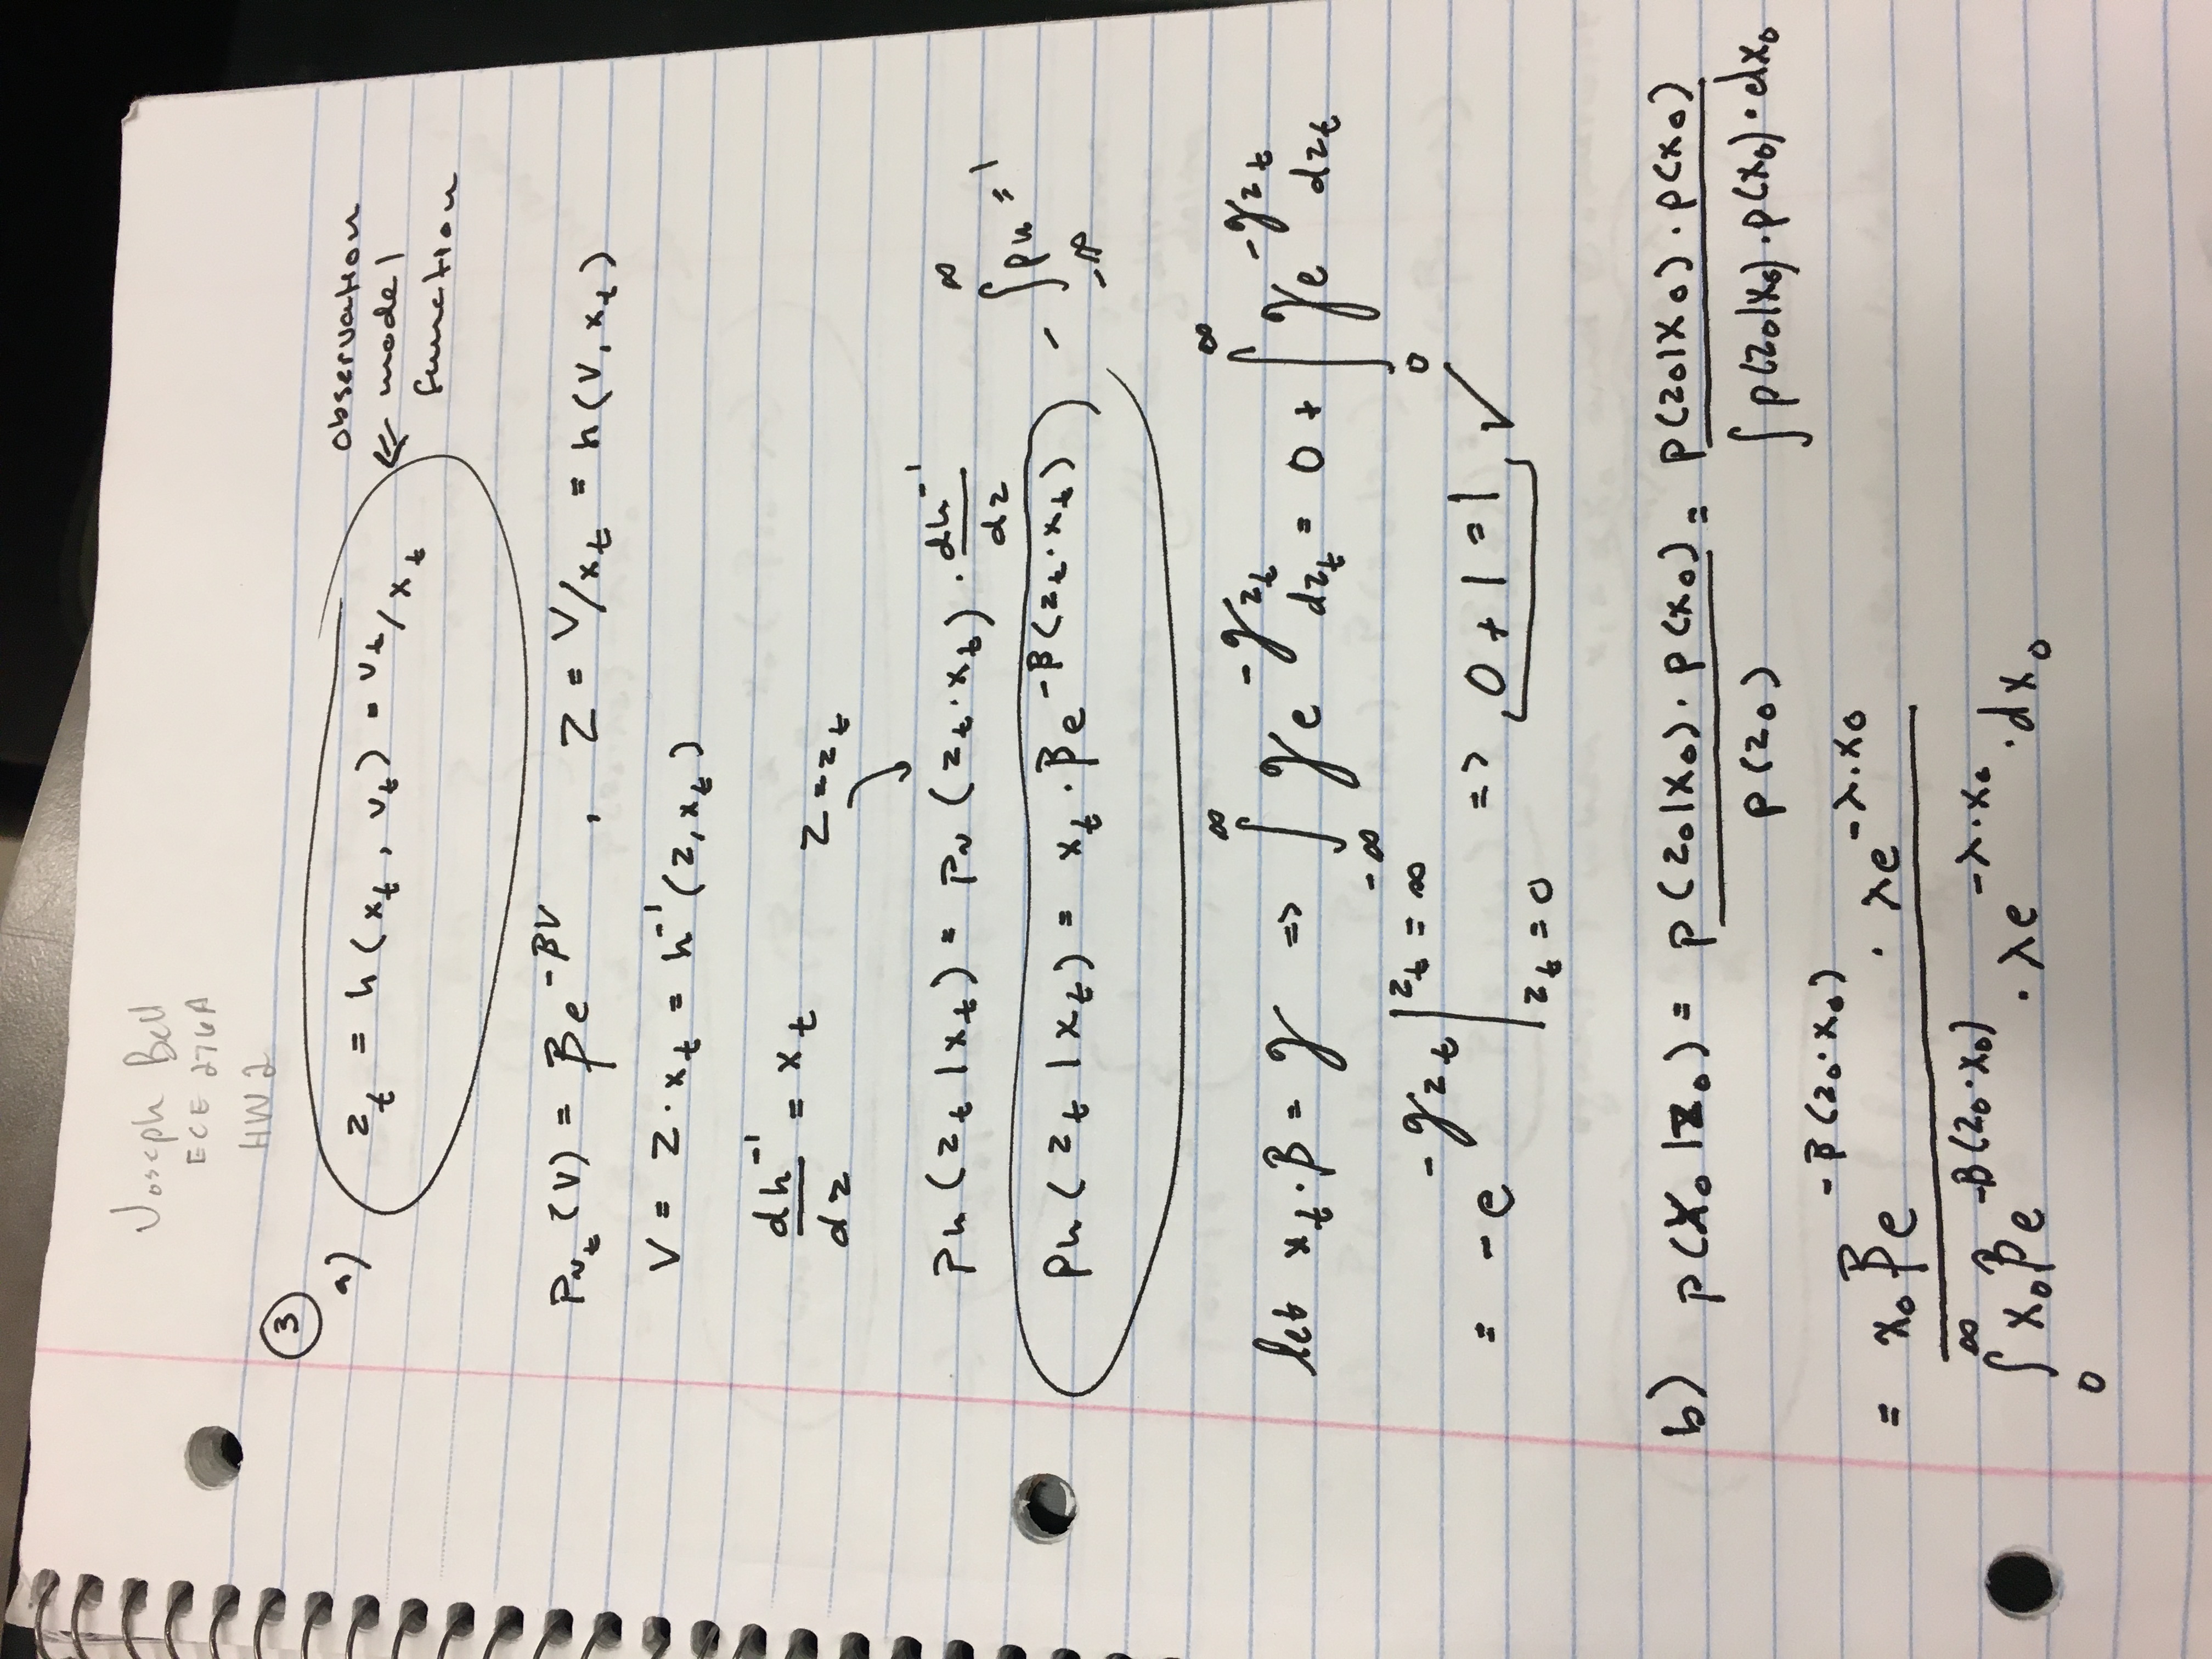 Joseph Bell
ECE 276A
HW 2
3
a) z_t = h(x_t, v_t) = v_t/x_t
observation
model
function
P_{v_t}(V) = βe^{-βV} , Z = V/x_t = h(V, x_t)
V = Z · x_t = h^{-1}(z, x_t)
dh^{-1}/dz = x_t
Z = z_t
Ph(z_t | x_t) = P_v(z_t · x_t) · dh^{-1}/dz
Ph(z_t | x_t) = x_t · βe^{-β(z_t · x_t)} - ∫_{-∞}^{∞} Ph = 1
let x_t · β = g => ∫_{-∞}^{∞} g e^{-g z_t} dz_t = 0 + ∫_0^∞ g e^{-g z_t} dz_t
= -e^{-g z_t} |_{z_t = 0}^{z_t = ∞} => 0 + 1 = 1 ✓
b) p(x_0 | z_0) = p(z_0|x_0) · p(x_0) / p(z_0) = p(z_0|x_0) · p(x_0) / ∫ p(z_0|x_0) · p(x_0) · dx_0
= x_0 βe^{-β(z_0 · x_0)} · λe^{-λ · x_0} / ∫_0^∞ x_0 βe^{-β(z_0 · x_0)} · λe^{-λ · x_0} · dx_0